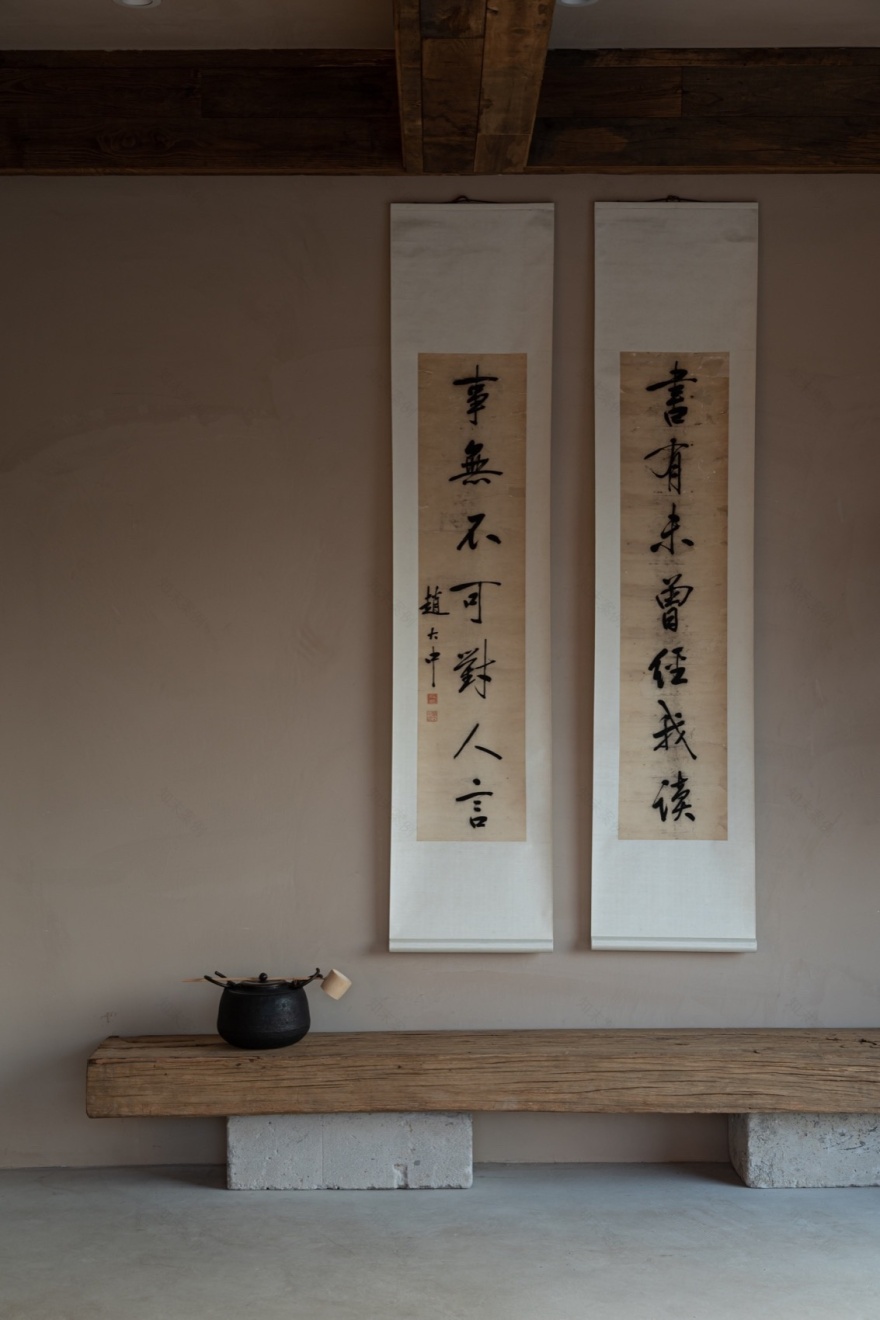 書有未曾經我读
事無不可對人言
趙大中